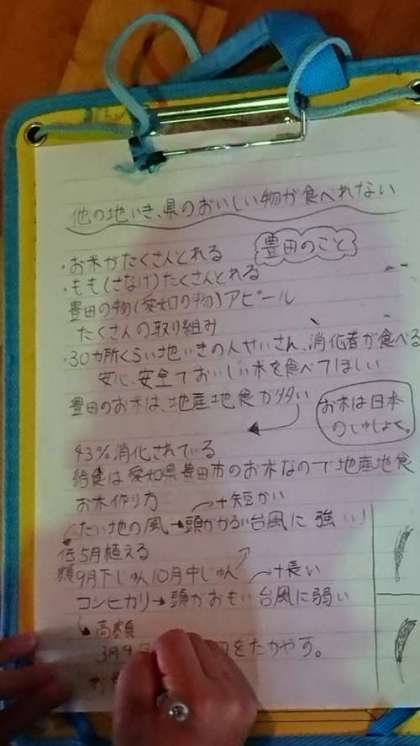 他の地いき、県のおいしい物が食べれない
豊田のこと
・お米がたくさんとれる
・もも(さなげ)たくさんとれる
豊田の物(愛知の物)アピール
たくさんの取り組み
・30カ所くらい地いきの人せいさん、消化者が食べる
安心、安全でおいしい米を食べてほしい
豊田のお米は、地産地食が多い
お米は日本
のしゅしょく。
43%消化されている
給食は愛知県豊田市のお米なので地産地食
お米作り方
→短かい
大地の風→頭がかるい台風に強い!
低額
5月植える
9月下じゅん10月中じゅん
→長い
コシヒカリ→頭がおもい台風に弱い
高額
をたがやす。